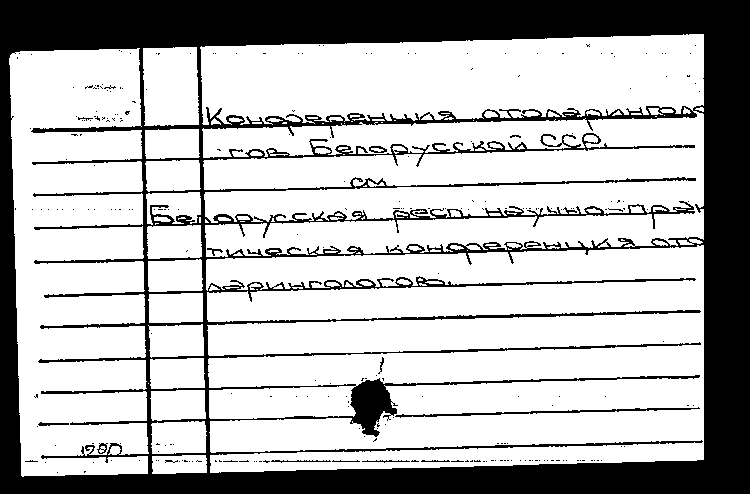 Конференция отоларинголо
гов Белорусской ССР.
см.
Белорусская респ. научно-прак
тическая конференция ото
ларингологов.